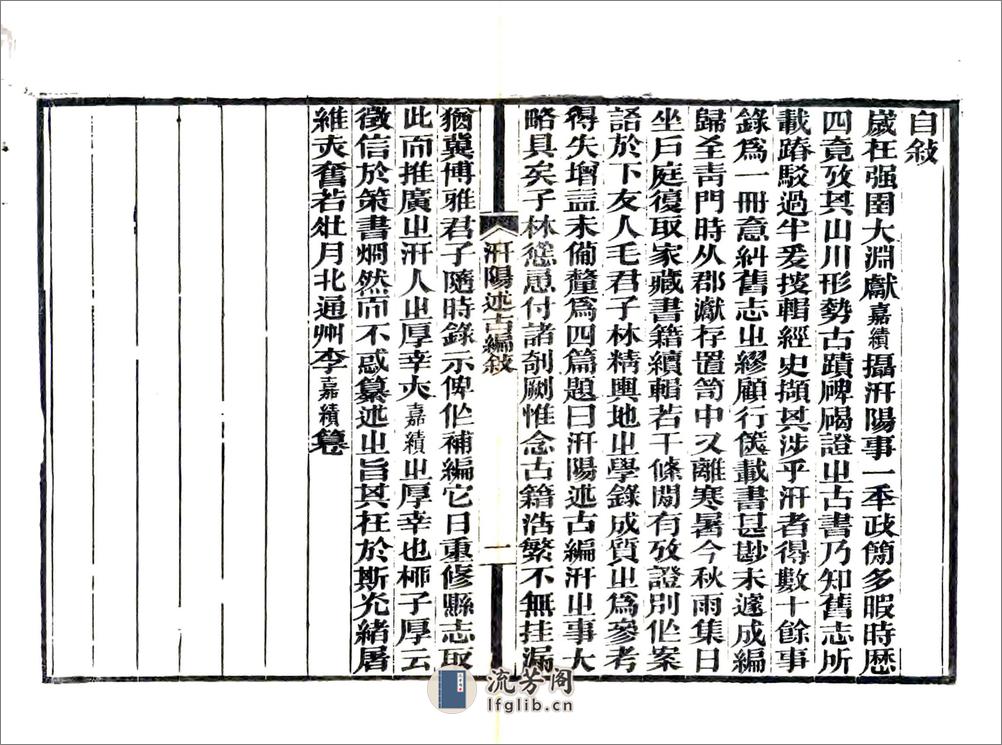 自敍
歲在强圉大淵獻嘉績攝汧陽事一年政簡多暇時歷
四竟攷其山川形勢古蹟碑碣證㞢古書乃知舊志所
載踳駁過半爰披輯經史擷其涉乎汧者得數十餘事
錄爲一冊意糾舊志㞢繆顧行篋載書甚尠未遽成編
歸至靑門時从郡瀻存置笥中又離寒暑今秋雨集日
坐戶庭復取家藏書籍續輯若干條閒有攷證別作案
語於下友人毛君子林精輿地㞢學錄成質㞢爲參考
得失增益未僃釐爲四篇題曰汧陽述古編汧㞢事大
略具矣子林慫恿付諸剞劂惟念古籍浩繁不無挂漏
汧陽述古編敍
一
猶冀博雅君子隨時錄示俾作補編它日重修縣志取
此而推廣㞢汧人㞢厚幸亦嘉績㞢厚幸也桺子厚云
徵信於策書烱然而不惑纂述㞢旨其在於斯光緒屠
維亦奮若壯月北通州李嘉績籑
流芳阁
lfglib.cn